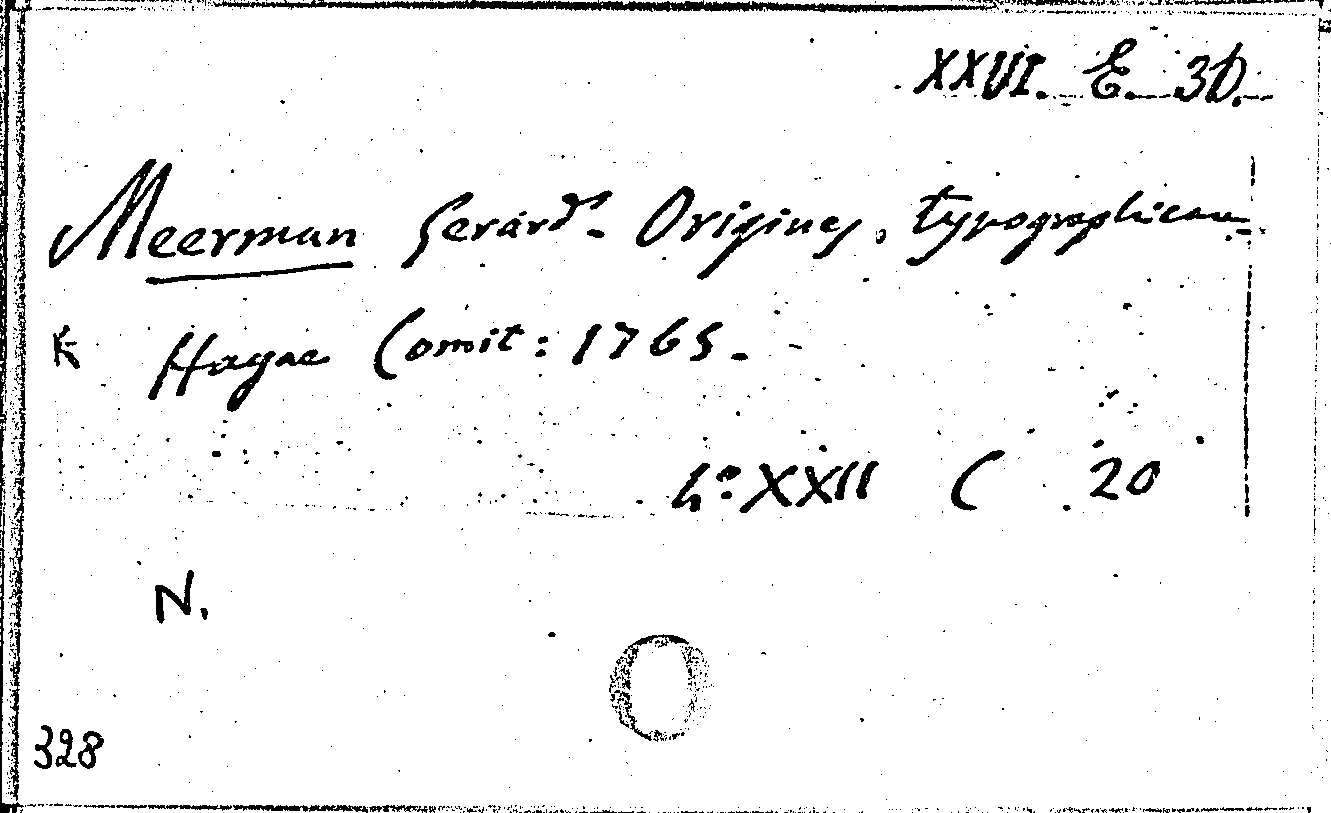 XXVI. E. 30.
Meerman Gerard. Origines typographicae.
Hagae Comit: 1765.
4° XXII C 20
N.
328